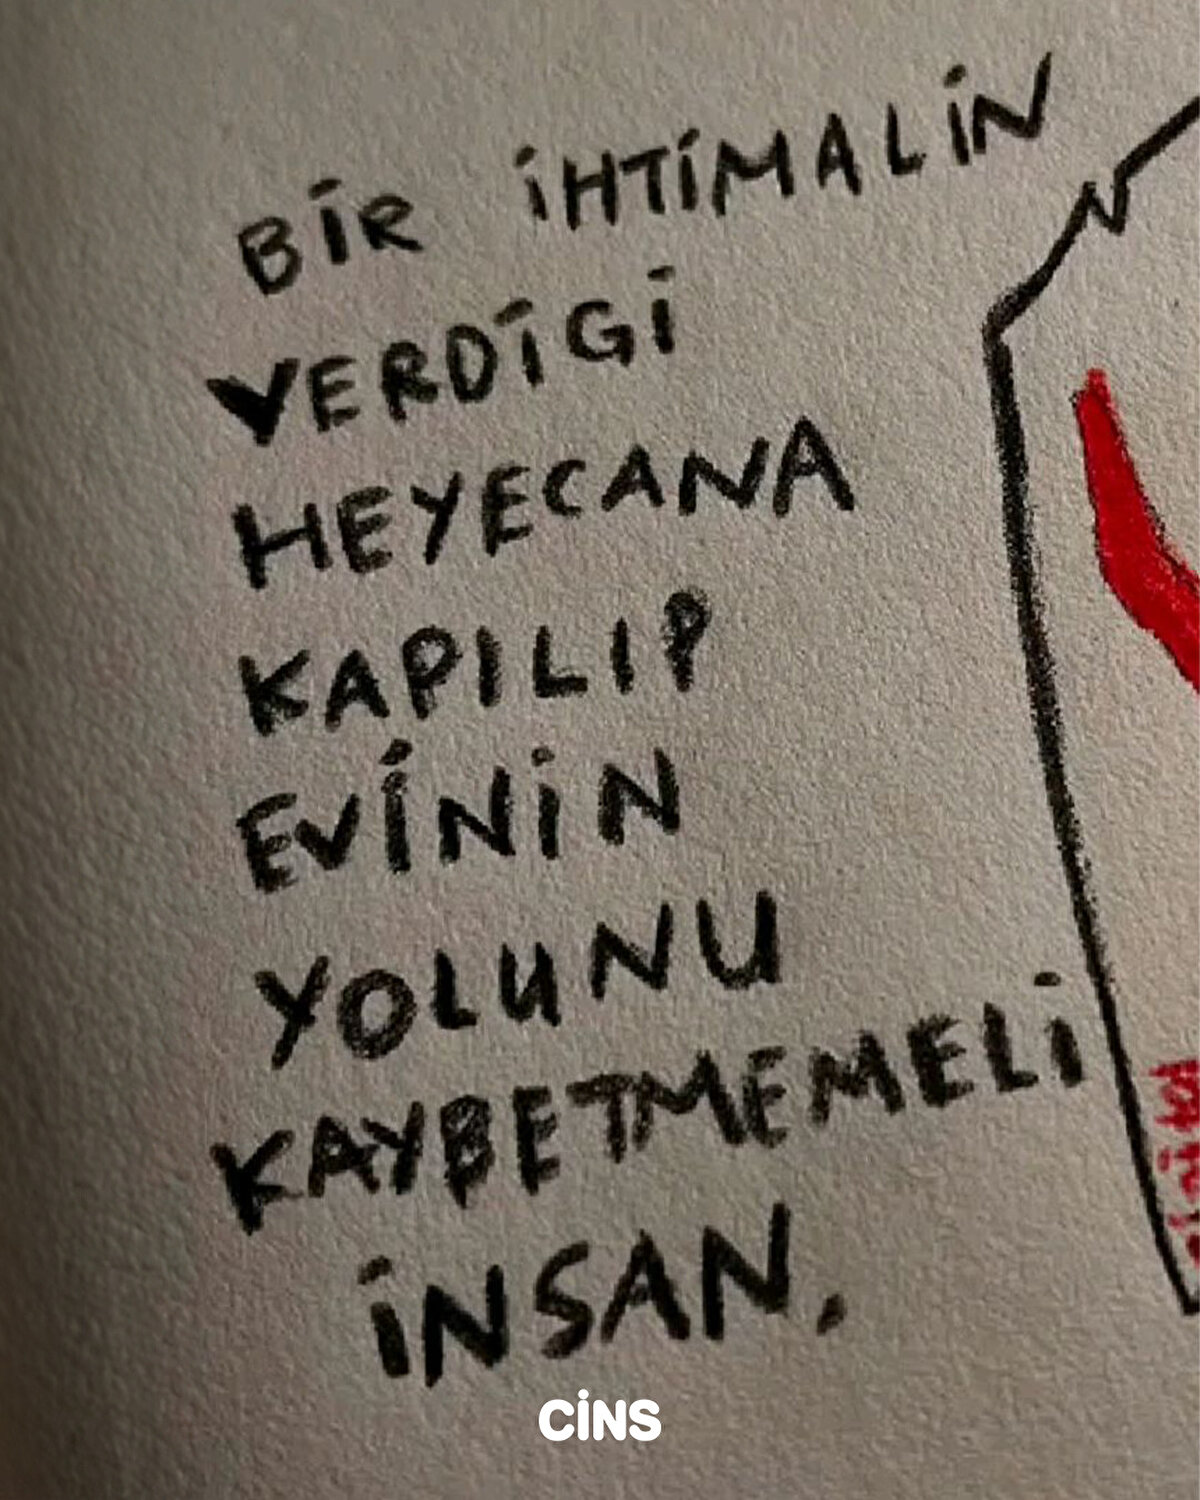 BİR İHTİMALİN
VERDİGİ
HEYECANA
KAPILIP
EVİNİN
YOLUNU
KAYBETMEMELİ
İNSAN.
CİNS